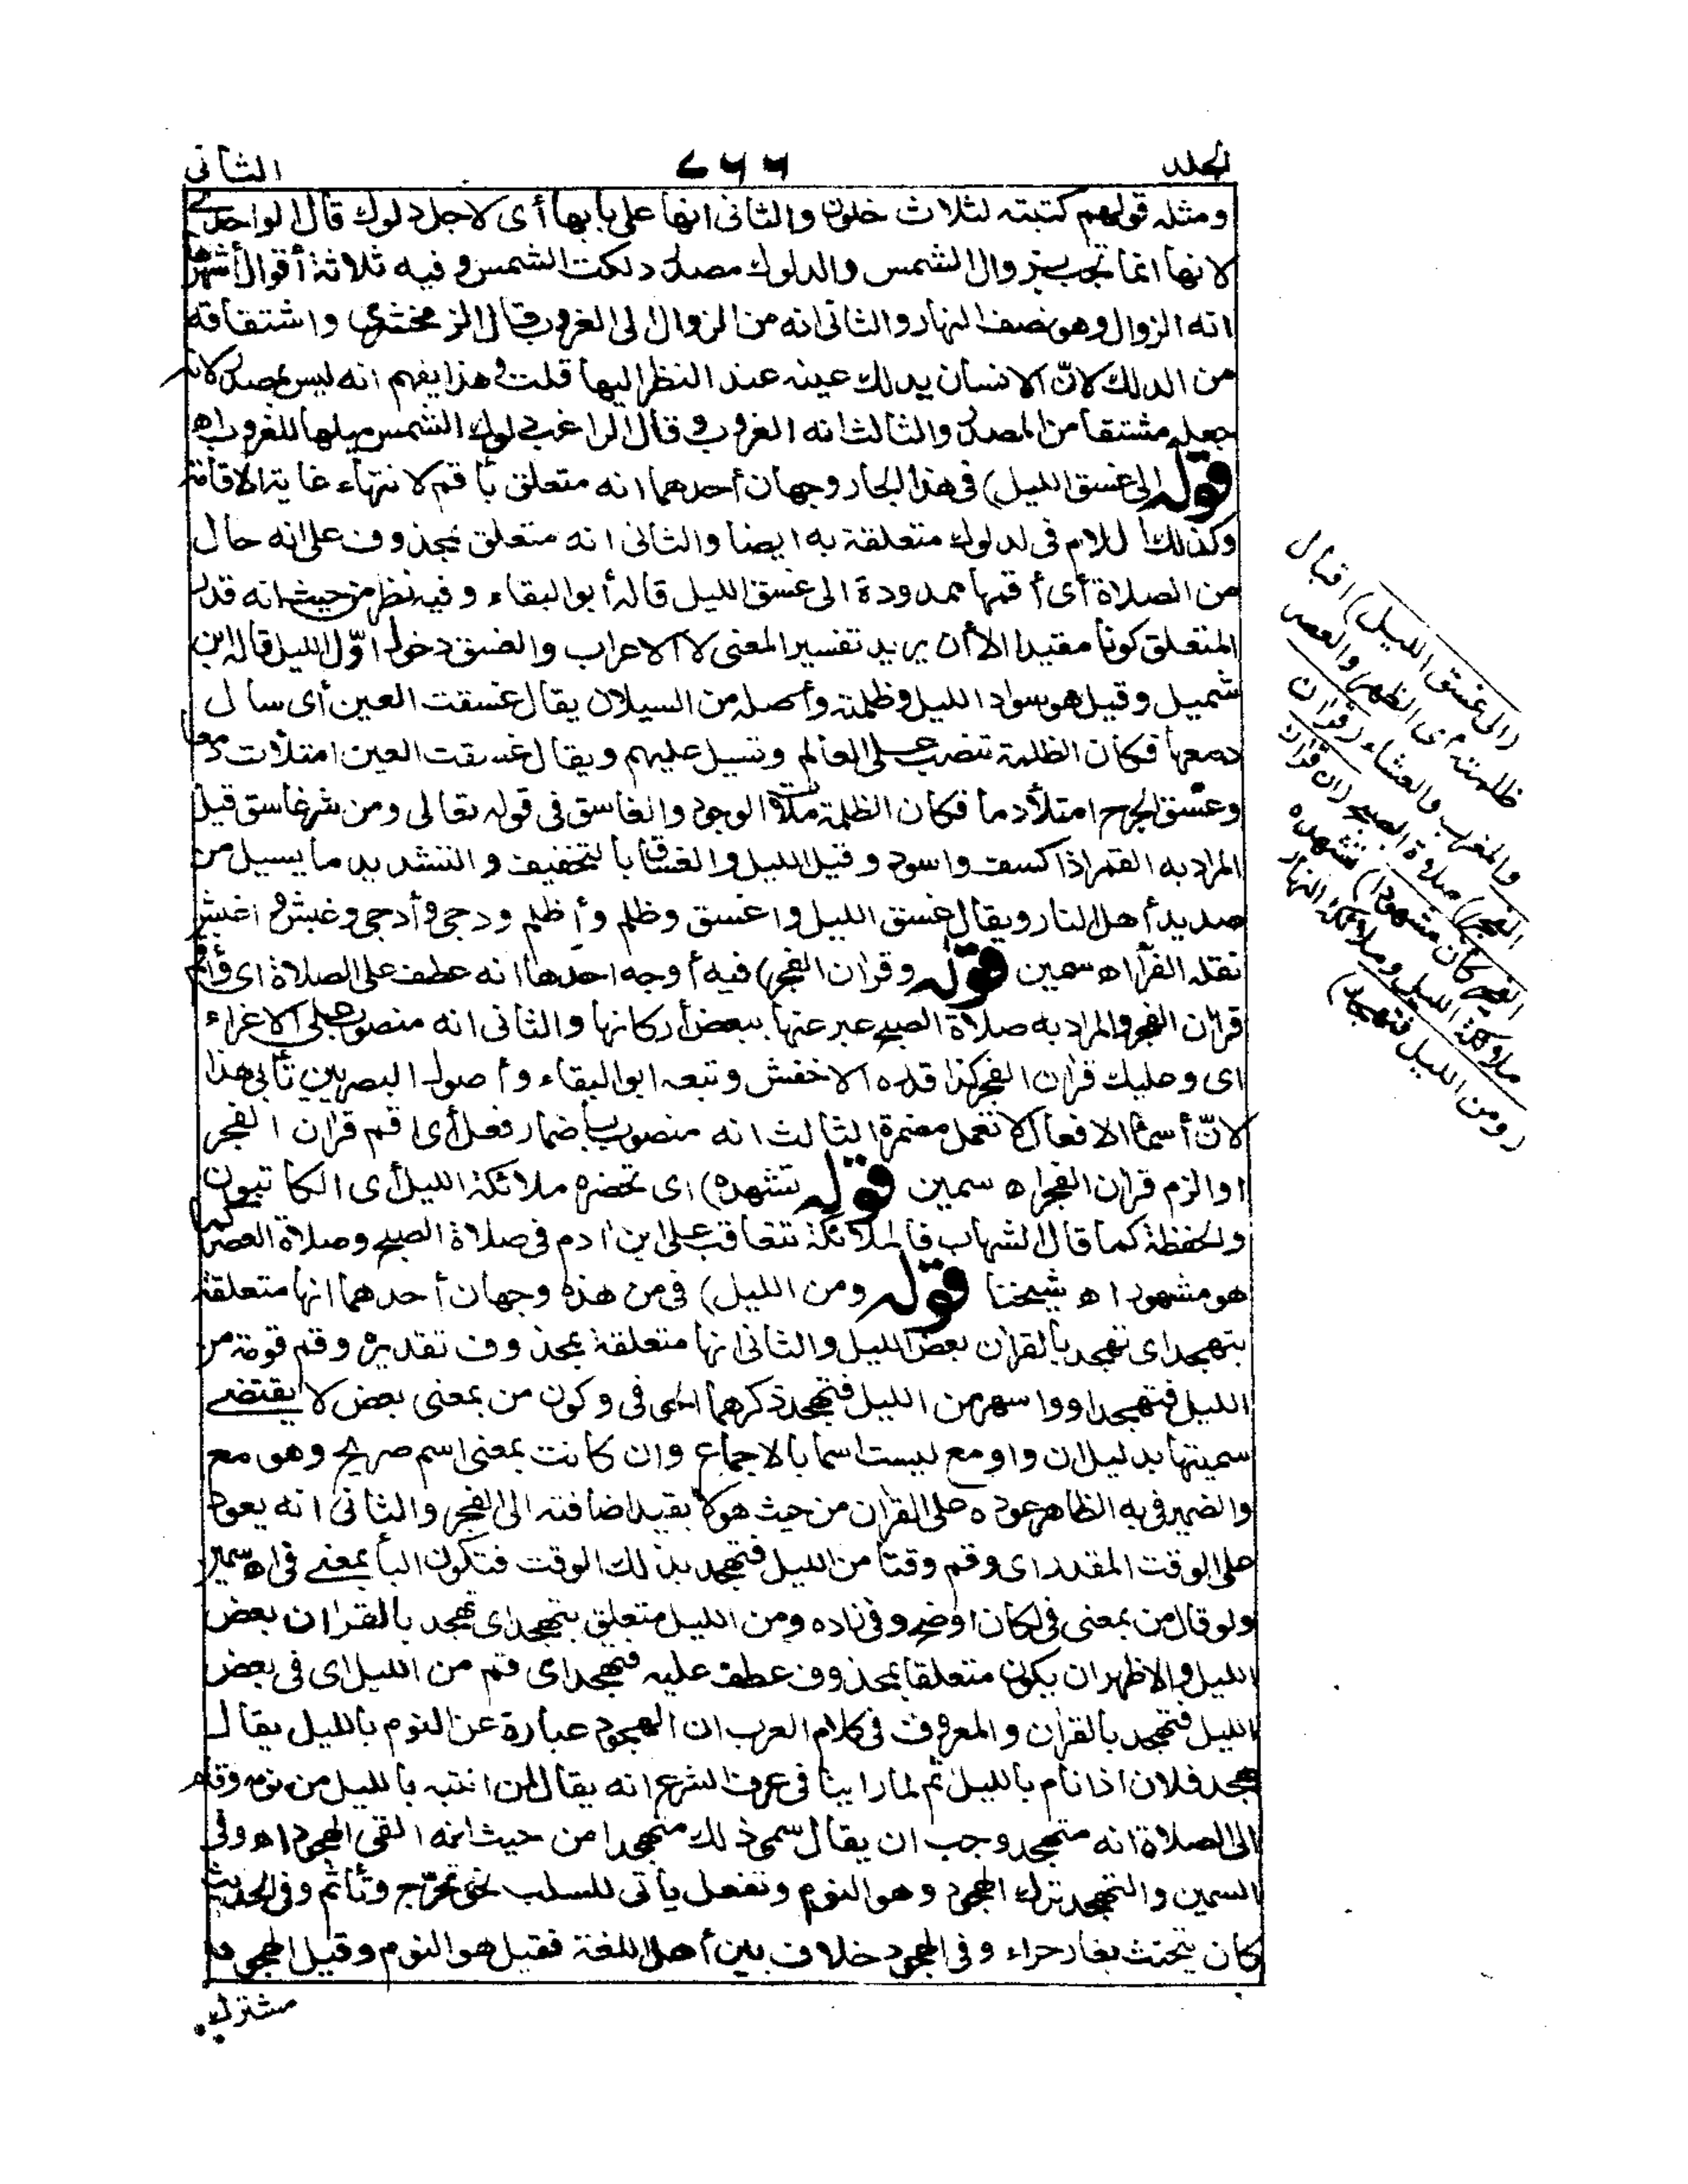 المجلد ٧٦٦ الثاني
ومثله قولهم كتبته لثلاث خلون والثاني انها على بابها أى لاجل دلوك قال الواحدى
لانها انما تجب بزوال الشمس والدلوك مصدر دلكت الشمس وفيه ثلاثة أقوال أشهرها
انه الزوال وهو نصف النهار والثاني انه من الزوال الى الغروب قال الزمخشرى واشتقاقه
من الدلك لانّ الانسان يدلك عينه عند النظر اليها قلت وهذا يفهم انه ليس بمصدر لانه
جعله مشتقا من المصدر والثالث انه الغروب وقال الراغب دلوك الشمس ميلها للغروب اه
قوله (الى غسق الليل) فى هذا الجار وجهان أحدهما انه متعلق بأقم لانتهاء غاية الاقامة
وكذلك اللام فى لدلوك متعلقة به ايضا والثانى انه متعلق بمحذوف على انه حال
من الصلاة أى أقمها ممدودة الى غسق الليل قاله أبوالبقاء وفيه نظر من حيث انه قدر
المتعلق كونا مقيدا الا أن يريد تفسير المعنى لا الاعراب والغسق دخول اوّل الليل قاله ابن
شميل وقيل هو سواد الليل وظلمته وأصله من السيلان يقال غسقت العين أى سال
دمعها فكان الظلمة تنصب على العالم وتسيل عليهم ويقال غسقت العين امتلأت دمعا
وغسق الجرح امتلأ دما فكان الظلمة ملأت الوجود والغاسق فى قوله تعالى ومن شر غاسق قيل
المراد به القمر اذا كسف واسود وقيل الليل والغساق بالتخفيف والتشديد ما يسيل من
صديد أهل النار ويقال غسق الليل واغسق وظلم وأظلم ودجى وأدجى وغبش واغبش
نقله الفراء اه سمين قوله (وقرآن الفجر) فيه أوجه احدها انه عطف على الصلاة اى وأقم
قرآن الفجر والمراد به صلاة الصبح عبر عنها ببعض أركانها والثانى انه منصوب على الاغراء
اى وعليك قرآن الفجر كذا قدره الاخفش وتبعه ابوالبقاء وأصول البصريين تأبى هذا
لانّ أسماء الافعال لا تعمل مضمرة الثالث انه منصوب باضمار فعل أى اقم قرآن الفجر
او الزم قرآن الفجر اه سمين قوله (تشهده) اى تحضره ملائكة الليل أى الكاتبون
والحفظة كما قال الشهاب فالملائكة تتعاقب على ابن ادم فى صلاة الصبح وصلاة العصر
هو مشهود اه شيخنا قوله (ومن الليل) فى من هذه وجهان أحدهما انها متعلقة
بتهجد اى تهجد بالقرآن بعض الليل والثانى انها متعلقة بمحذوف تقديره وقم قومة من
الليل فتهجد او واسهر من الليل فتهجد ذكرهما الحوفى وكون من بمعنى بعض لا يقتضى
سميتها بدليل ان واو مع ليست اسما بالاجماع وان كانت بمعنى اسم صريح وهو مع
والضمير فى به الظاهر عوده على القرآن من حيث هو لا بقيد اضافته الى الفجر والثانى انه يعود
على الوقت المقدر اى وقم وقتا من الليل فتهجد بذلك الوقت فتكون الباء بمعنى فى اه سمين
ولو قال من بمعنى فى لكان اوضح وفى زاده ومن الليل متعلق بتهجد اى تهجد بالقرآن بعض
الليل والاظهر ان يكون متعلقا بمحذوف عطف عليه فتهجد اى قم من الليل اى فى بعض
الليل فتهجد بالقرآن والمعروف فى كلام العرب ان الهجود عبارة عن النوم بالليل يقال
هجد فلان اذا نام بالليل ثم لما راينا فى عرف الشرع انه يقال لمن انتبه بالليل من نومه وقام
الى الصلاة انه متهجد وجب ان يقال سمى ذلك متهجدا من حيث انه القى الهجود اه وفى
السمين والتهجد ترك الهجود وهو النوم وتفعل يأتى للسلب نحو تحرّج وتأثم وفى الحديث
كان يتحنث بغار حراء وفى الهجود خلاف بين أهل اللغة فقيل هو النوم وقيل الهجود
مشترك
(الى غسق الليل) اقبال
ظلمته اى الظهر والعصر
والمغرب والعشاء (وقرآن
الفجر) صلاة الصبح (ان قرآن
الفجر كان مشهودا) تشهده
ملائكة الليل وملائكة النهار
(ومن الليل فتهجد)